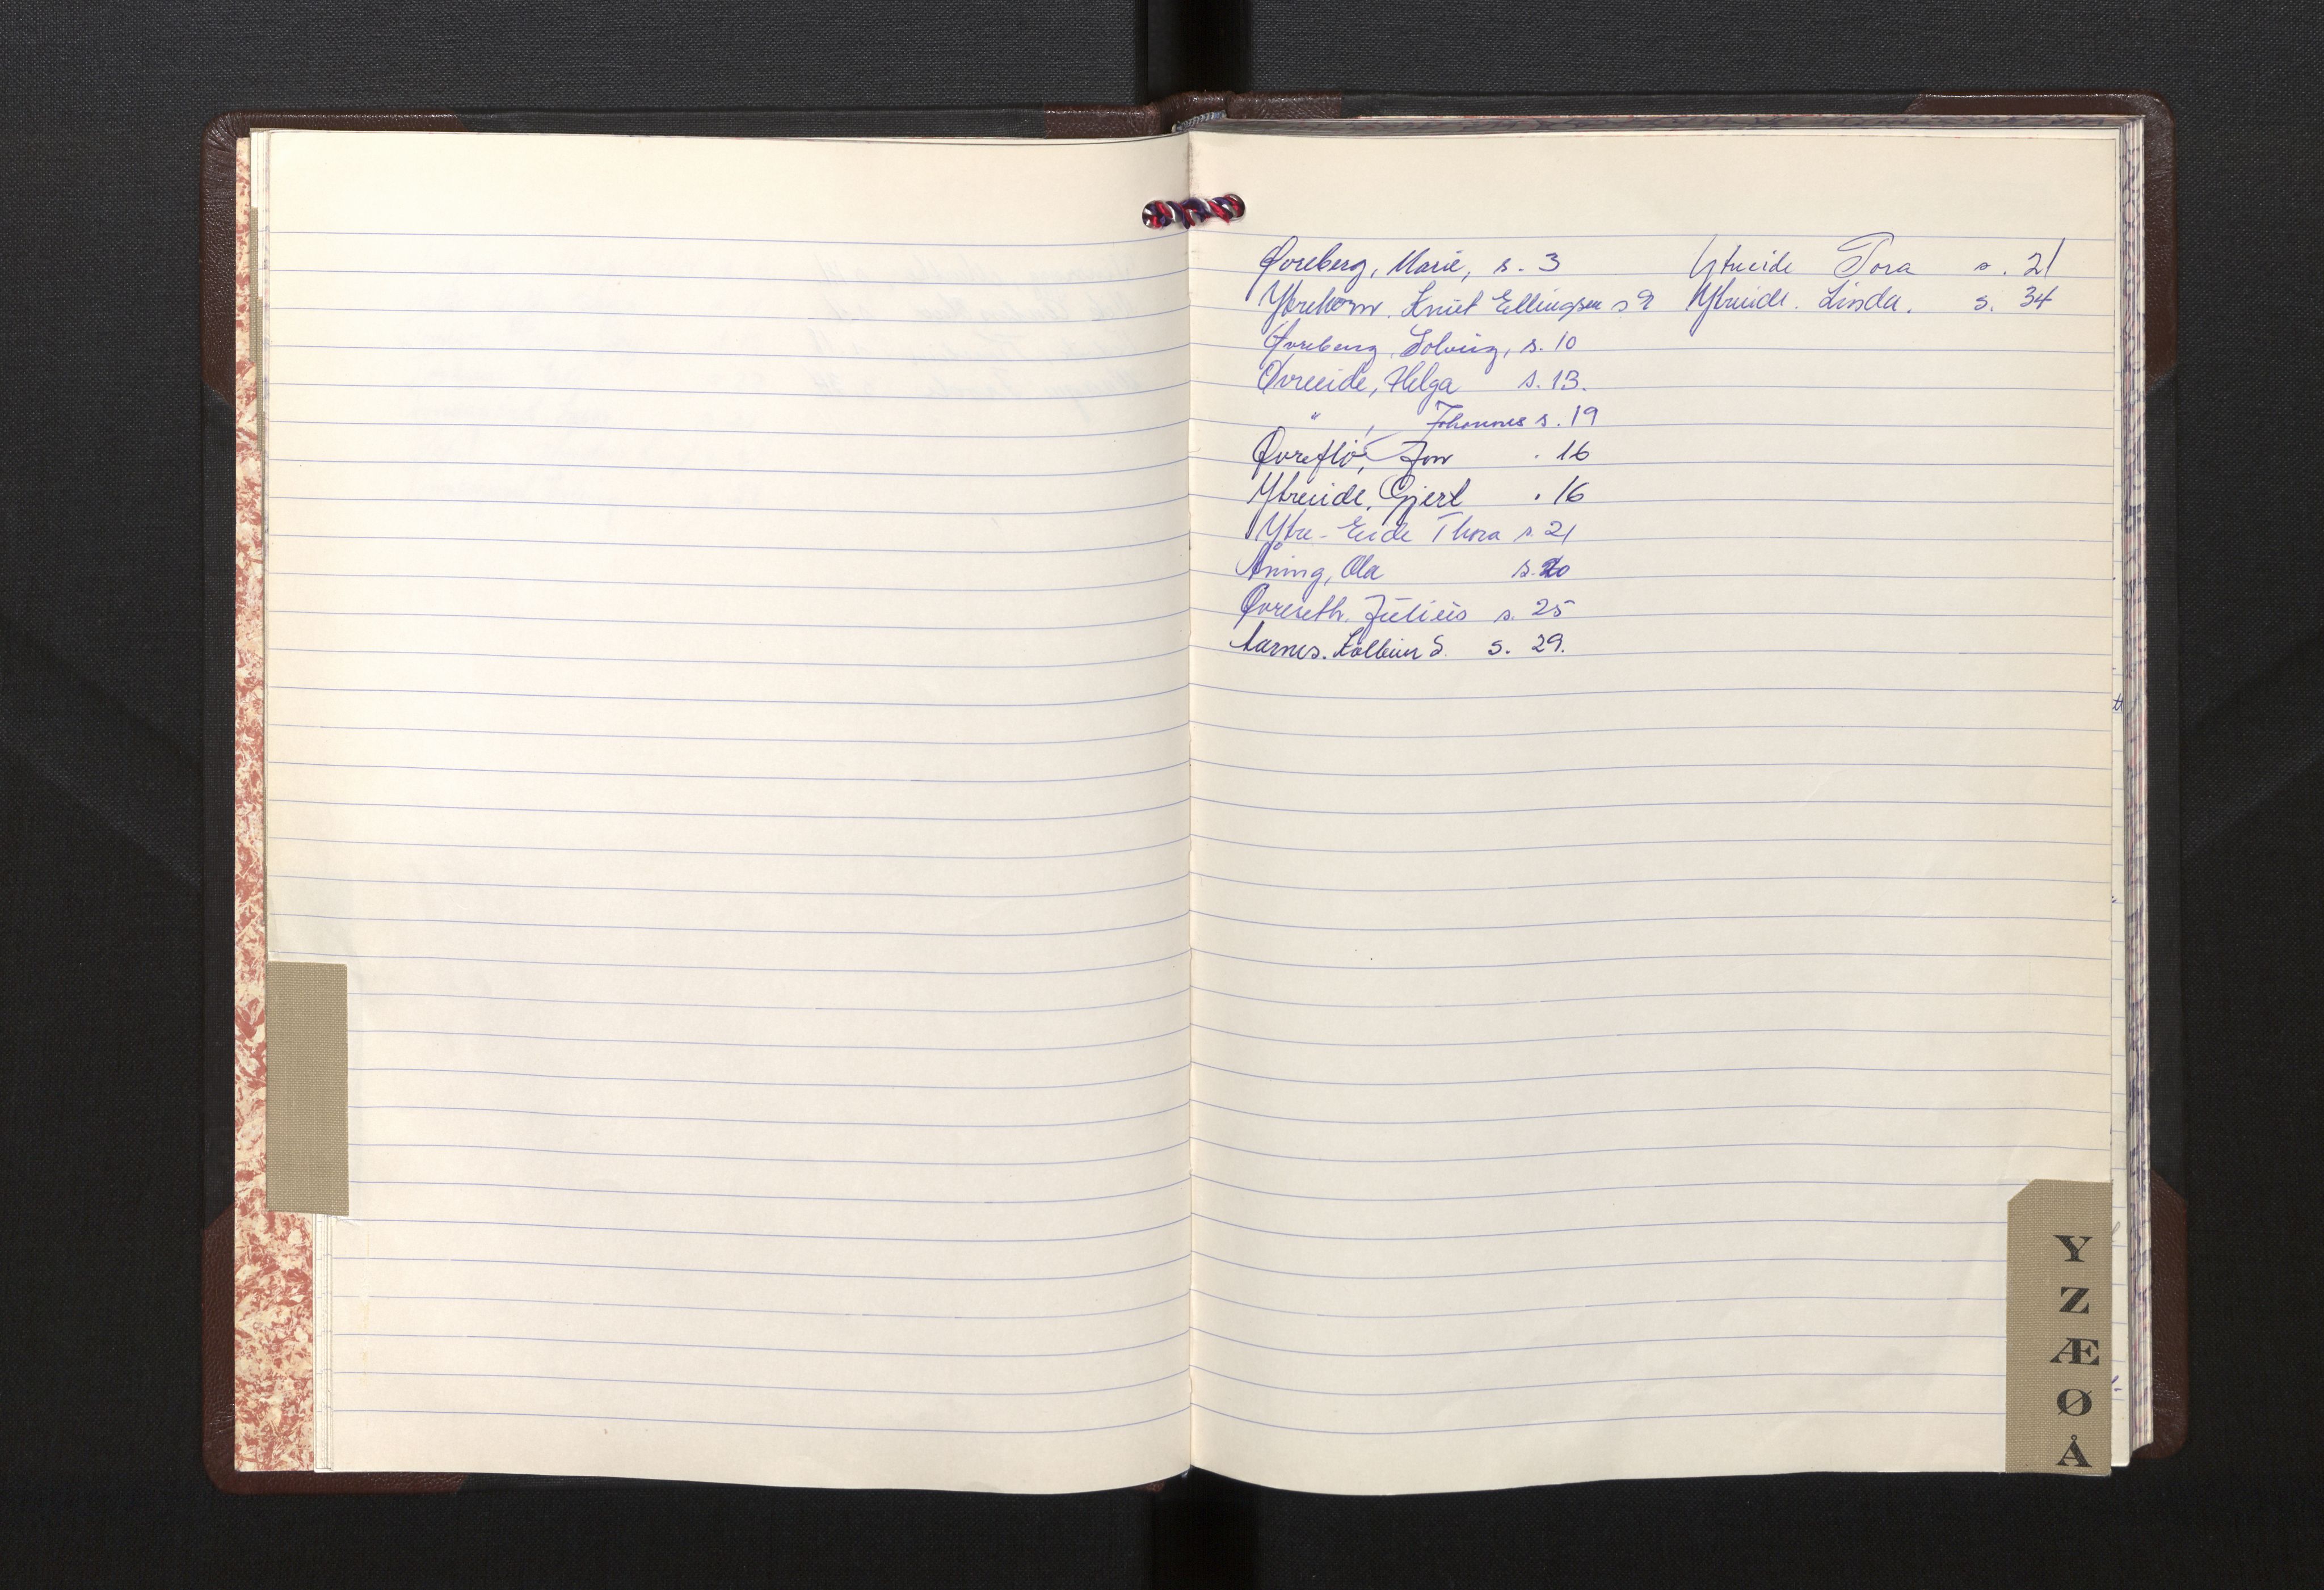 Øvreberg, Marie, s. 3
Ytrehorn. Knut Ellingsen s 9
Øvreberg, Solveig, s. 10
Øvreeide, Helga s. 13.
" , Johannes s. 19
Øvreflo, Jon . 16
Ytreeide, Gjert . 16
Ytre-Eide Thora s. 21
Åning, Ola s. 20
Øvreseth, Julius s. 25
Aarnes. Kolbein S. s. 29.
Ytreeide Tora s. 21
Ytreeide. Linda. s. 34
Y
Z
Æ
Ø
Å